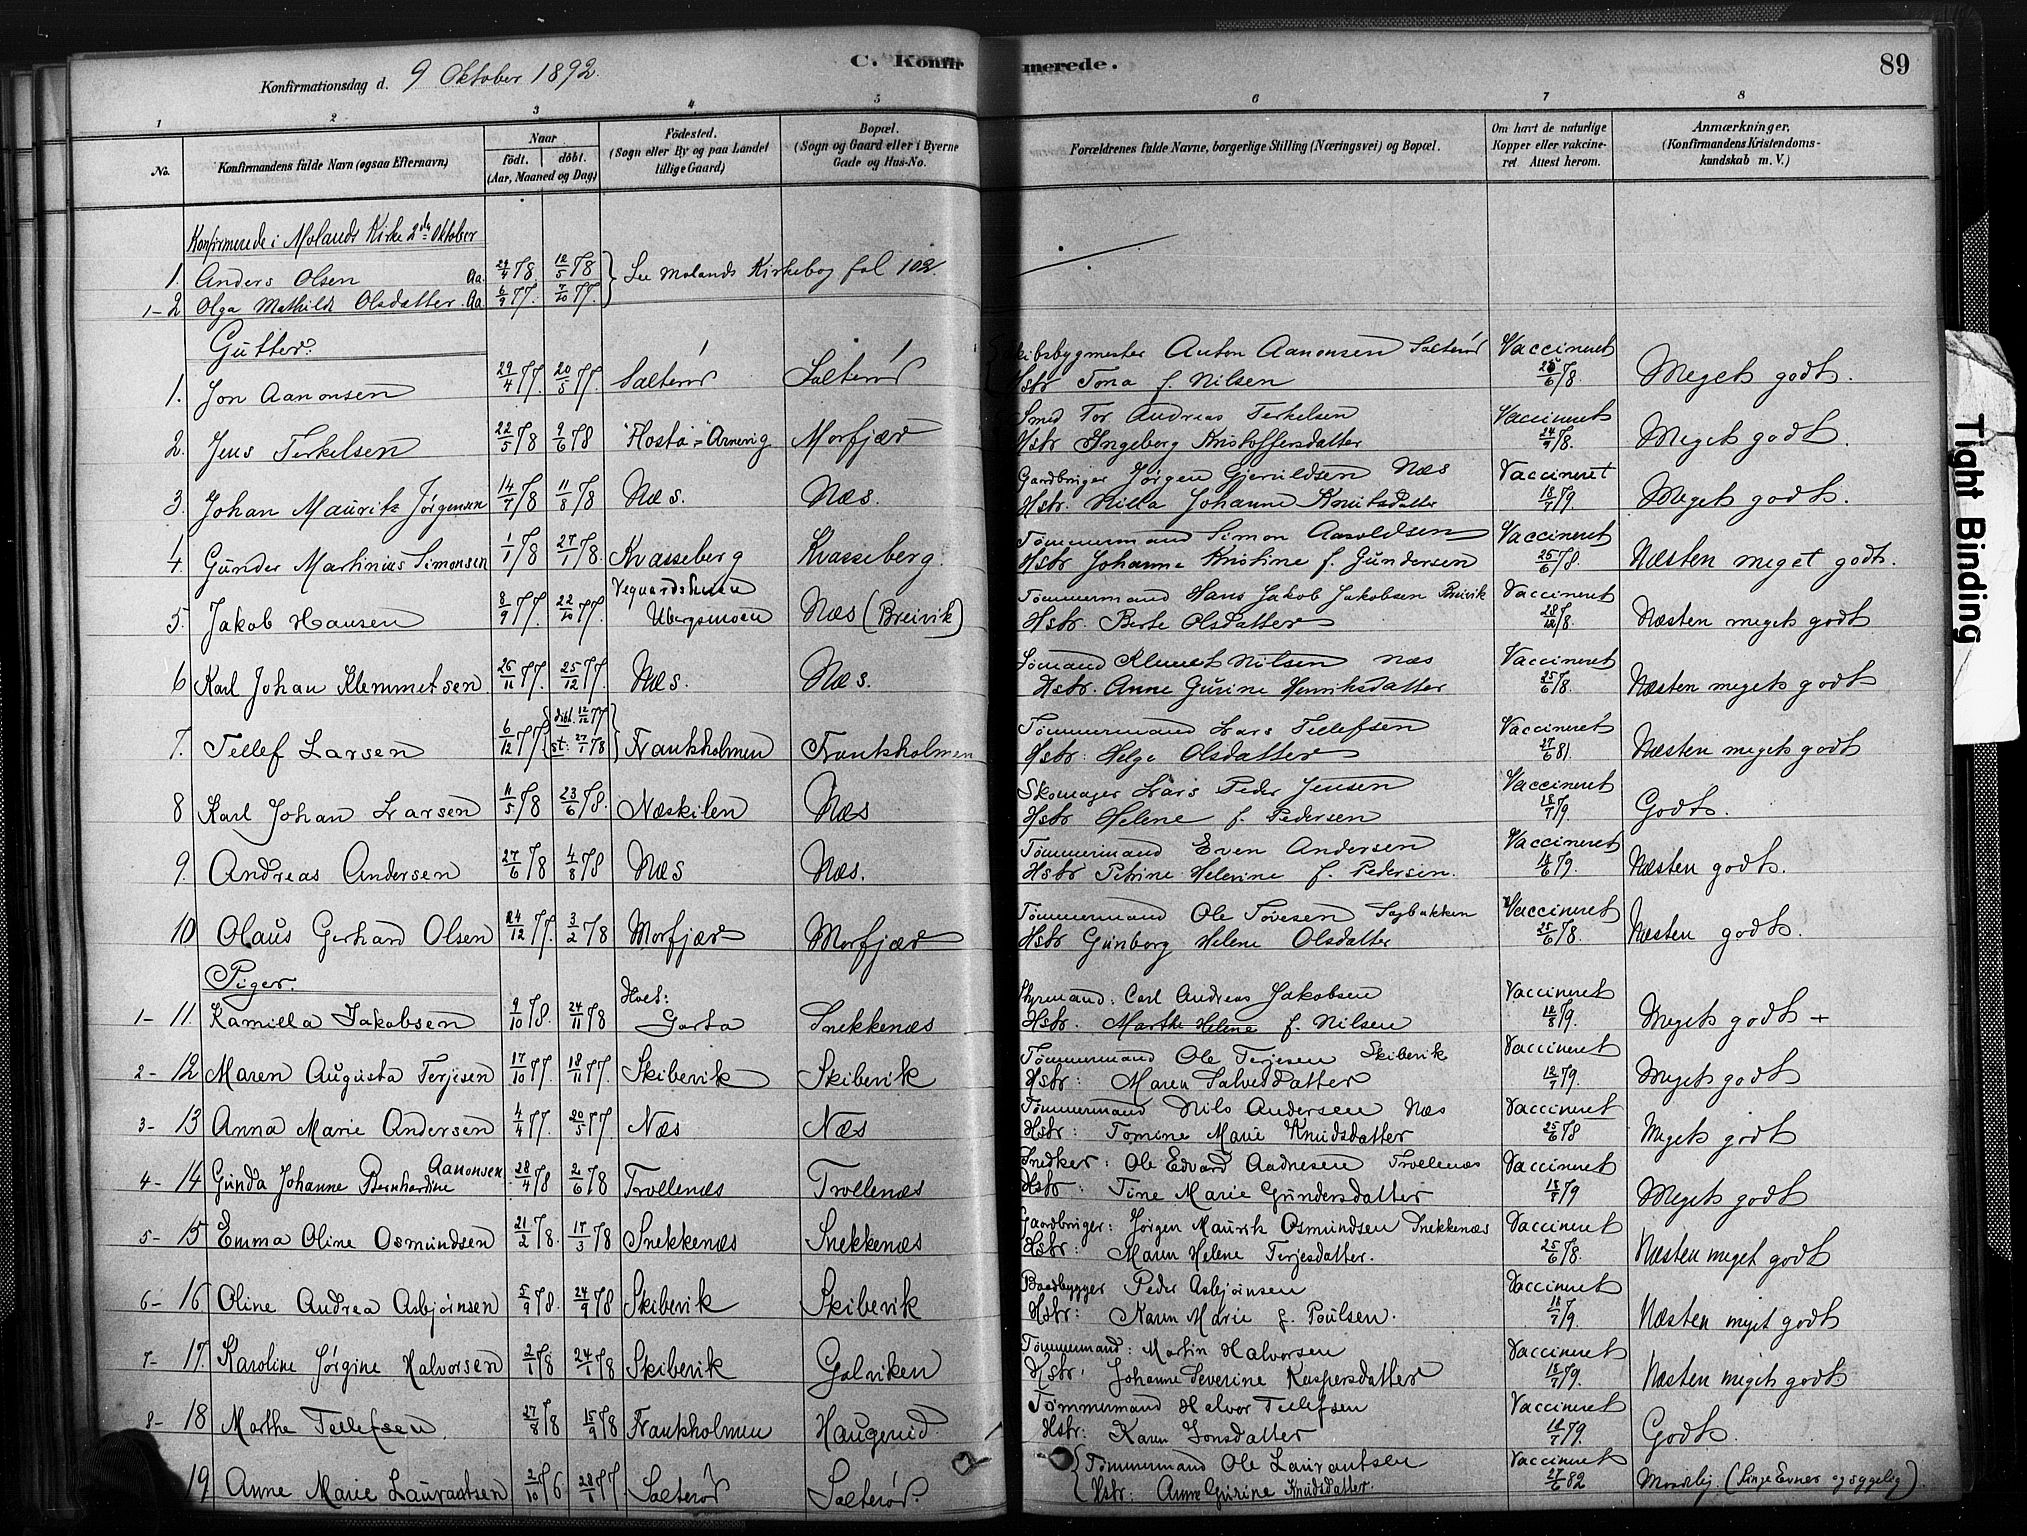 Konfirmationsdag d. 9 Oktober 1892.
C. Konfirmerede.
89
1 2 3 4 5 6 7 8
No.
Konfirmandens fulde Navn (ogsaa Efternavn)
Naar
født. døbt.
(Aar, Maaned og Dag)
Fødested.
(Sogn eller By og paa Landet
tillige Gaard)
Bopæl.
(Sogn og Gaard eller i Byerne
Gade og Hus-No.
Forældrenes fulde Navne, borgerlige Stilling (Næringsvei) og Bopæl.
Om havt de naturlige
Kopper eller vakcine-
ret Attest herom.
Anmærkninger,
(Konfirmandens Kristendoms-
kundskab m. V.)
Konfirmerede i Molands Kirke 2den Oktober
1. Anders Olsen Aa. 29/4 78 12/5 78 } See Molands Kirkebog fol 102
1-2 Olga Mathilde Olsdatter Aa. 6/9 77. 7/10 77.
Gutter:
Skibsbygmester Anton Aanonsen Salterød Vaccineret
1. Jon Aanonsen 29/4 77. 20/5 77. Salterød Salterød Hstr Tona f. Nilsen 25/6 78. Meget godt.
Smed Tor Andreas Terkelsen Vaccineret
2. Jens Terkelsen 22/5 78 9/6 78 "Flosta"-Arnevig Morfjær Hstr Ingeborg Kristoffersdatter 24/9 78. Meget godt.
Gardbruger Jørgen Gjeruldsen Næs Vaccineret
3. Johan Mauritz Jørgensen 14/7 78 11/8 78 Næs. Næs. Hstr. Nilla Johanne Knutsdatter 18/7 79. Meget godt.
Tømmermand Simon Aasoldsen Vaccineret
4. Gunder Martinius Simonsen 1/1 78 27/1 78. Kvasseberg Kvasseberg. Hstr Johanne Kristine f. Gundersen 25/6 78. Næsten meget godt.
Vegaardsheien Tømmermand Hans Jakob Jakobsen Breivik Vaccineret
5. Jakob Hansen 8/9 77. 22/10 77. Ubergsmoen Næs (Breivik) Hstr. Berte Olsdatter 28/12 78. Næsten meget godt
Sømand Klemet Nilsen Næs Vaccineret
6 Karl Johan Klemmetsen 26/11 77. 25/12 77. Næs. Næs. Hstr. Anne Gurine Henriksdatter 25/6 78. Næsten meget godt
døbt. 12/12 77 Tømmermand Lars Tellefsen Vaccineret
7. Tellef Larsen 6/12 77 st: 27/1 78 Frankholmen Frankholmen Hstr: Helge Olsdatter 27/6 81. Næsten meget godt
Skomager Lars Peder Jensen Vaccineret
8 Karl Johan Larsen 11/5 78 23/6 78. Næskilen Næs Hstr Helene f. Pedersen 18/7 79. Godt.
Tømmermand Even Andersen Vaccineret
9. Andreas Andersen 27/6 78 4/8 78 Næs Næs. Hstr Petrine Helevine f. Pedersen. 18/6 79. Næsten godt.
Tømmermand Ole Tovesen Sagbakken Vaccineret
10 Olaus Gerhard Olsen 24/12 77. 3/2 78 Morfjær Morfjær Hstr Gunborg Helene Olsdatter 25/6 78. Næsten godt.
Piger.
Holt: Styrmand: Carl Andreas Jakobsen Vaccineret
1- 11. Kamilla Jakobsen 9/10 78. 24/11 78 Garta Snekkenæs Hstr. Marthe Helene f. Nilsen 12/8 79. Meget godt +
Tømmermand Ole Terjesen Skibevik Vaccineret
2- 12 Maren Augusta Terjesen 17/10 77. 18/11 77. Skibevik Skibevik Hstr: Maren Salvesdatter 12/7 79. Meget godt
Tømmermand Nils Andersen Næs Vaccineret
3- 13 Anna Marie Andersen 4/4 77. 20/5 77. Næs Næs Hstr: Tomine Marie Knudsdatter 25/6 78 Meget godt
Aanonsen Snedker: Ole Edvard Aadnesen Trollenæs Vaccineret
4- 14 Gunda Johanne Bernhardine 28/4 78 2/6 78 Trollenæs Trollenæs Hstr: Tine Marie Gundersdatter 18/7 79 Meget godt
Gaardbruger: Jørgen Maurits Osmundsen Snekkenæs Vaccineret
5- 15 Emma Oline Osmundsen 21/2 78. 17/3 78 Snekkenæs Snekkenæs Hstr: Maren Helene Terjesdatter. 25/6 78. Næsten meget godt
Baadbygger Peder Asbjørnsen Vaccineret
6- 16 Oline Andrea Asbjørnsen 5/9 78. 24/9 78 Skibevik Skibevik Hstr: Karen Marie f. Poulsen. 18/7 79. Næsten meget godt
Tømmermand: Martin Halvorsen Vaccineret
7- 17. Karoline Jørgine Halvorsen 2/1 78 24/1 78 Skibevik Galviken Hstr. Johanne Severine Kaspersdatter 18/7 79. Næsten meget godt.
Tømmermand Halvor Tellefsen Vaccineret
8- 18 Marthe Tellefsen. 27/8 78 15/9 78 Frankholmen Haugerud. Hstr: Karen Jonsdatter 18/7 79. Godt.
Tømmermand Ole Laurantsen Vaccineret
19 Anne Marie Laurantsen 2/10 76 28/1 77. Salterød Salterød. Hstr: Anne Gurine Knudsdatter. 27/6 82 Maadelig. (Ringe Evner og sygelig).
Tight Binding